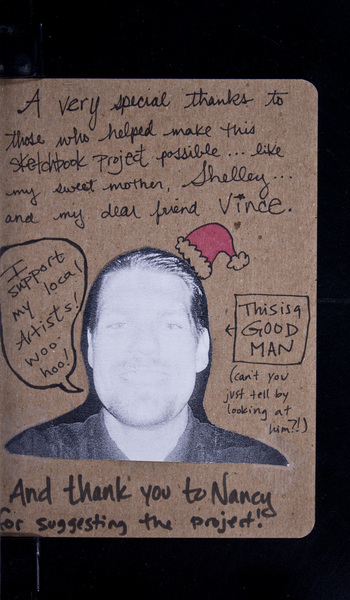 A very special thanks to
those who helped make this
sketchbook project possible... like
my sweet mother, Shelley...
and my dear friend Vince.
I
support
my local
Artists!
woo
hoo!
This is a
GOOD
MAN
(can't you
just tell by
looking at
him?!)
And thank you to Nancy
for suggesting the project!